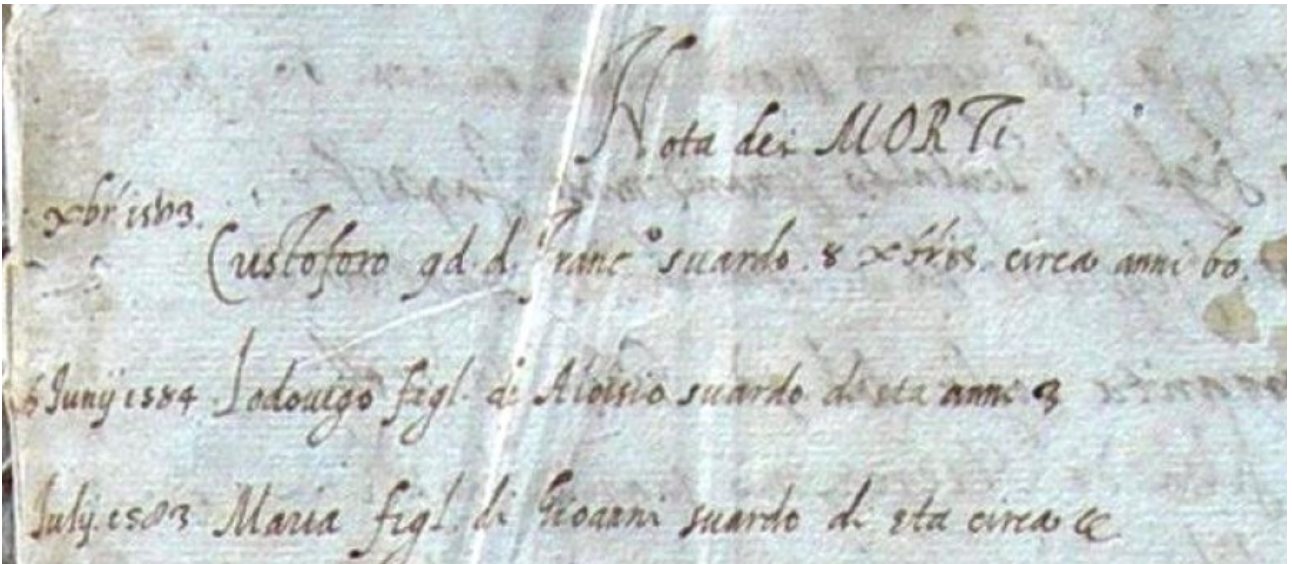 Nota dei MORTi
xbr 1583.
Custoforo qd. d. Franc° suardo. 8 xbr 83. circa anni 60.
6 Junij 1584 Lodovigo figl. di Aloisio suardo di eta anni 3
July. 1583 Maria figl. di Gioanni suardo di eta circa